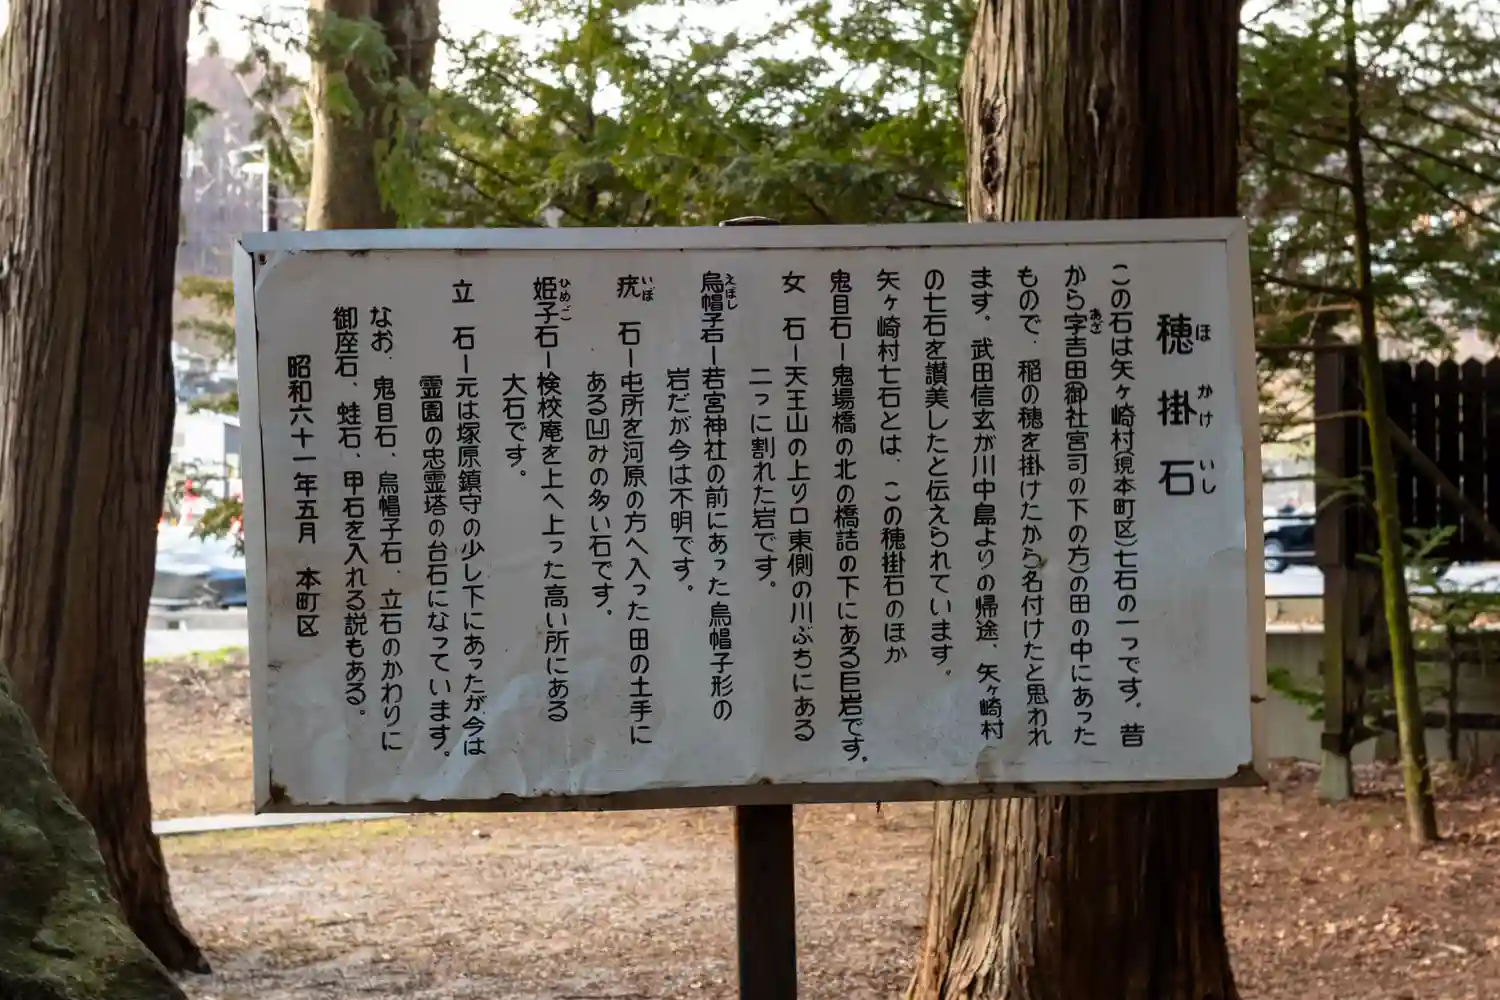 穂掛石
ほかけいし
この石は矢ヶ崎村(現本町区)七石の一つです。昔
から字吉田(御社宮司の下の方)の田の中にあった
あざ
もので、稲の穂を掛けたから名付けたと思われ
ます。武田信玄が川中島よりの帰途、矢ヶ崎村
の七石を讃美したと伝えられています。
矢ヶ崎村七石とは、この穂掛石のほか
鬼目石ー鬼場橋の北の橋詰の下にある巨岩です。
女石ー天王山の上り口東側の川ぶちにある
二っに割れた岩です。
烏帽子石ー若宮神社の前にあった烏帽子形の
えぼし
岩だが今は不明です。
疣石ー屯所を河原の方へ入った田の土手に
いぼ
ある凹みの多い石です。
姫子石ー検校庵を上へ上った高い所にある
ひめご
大石です。
立石ー元は塚原鎮守の少し下にあったが今は
霊園の忠霊塔の台石になっています。
なお、鬼目石、烏帽子石、立石のかわりに
御座石、蛙石、甲石を入れる説もある。
昭和六十一年五月 本町区